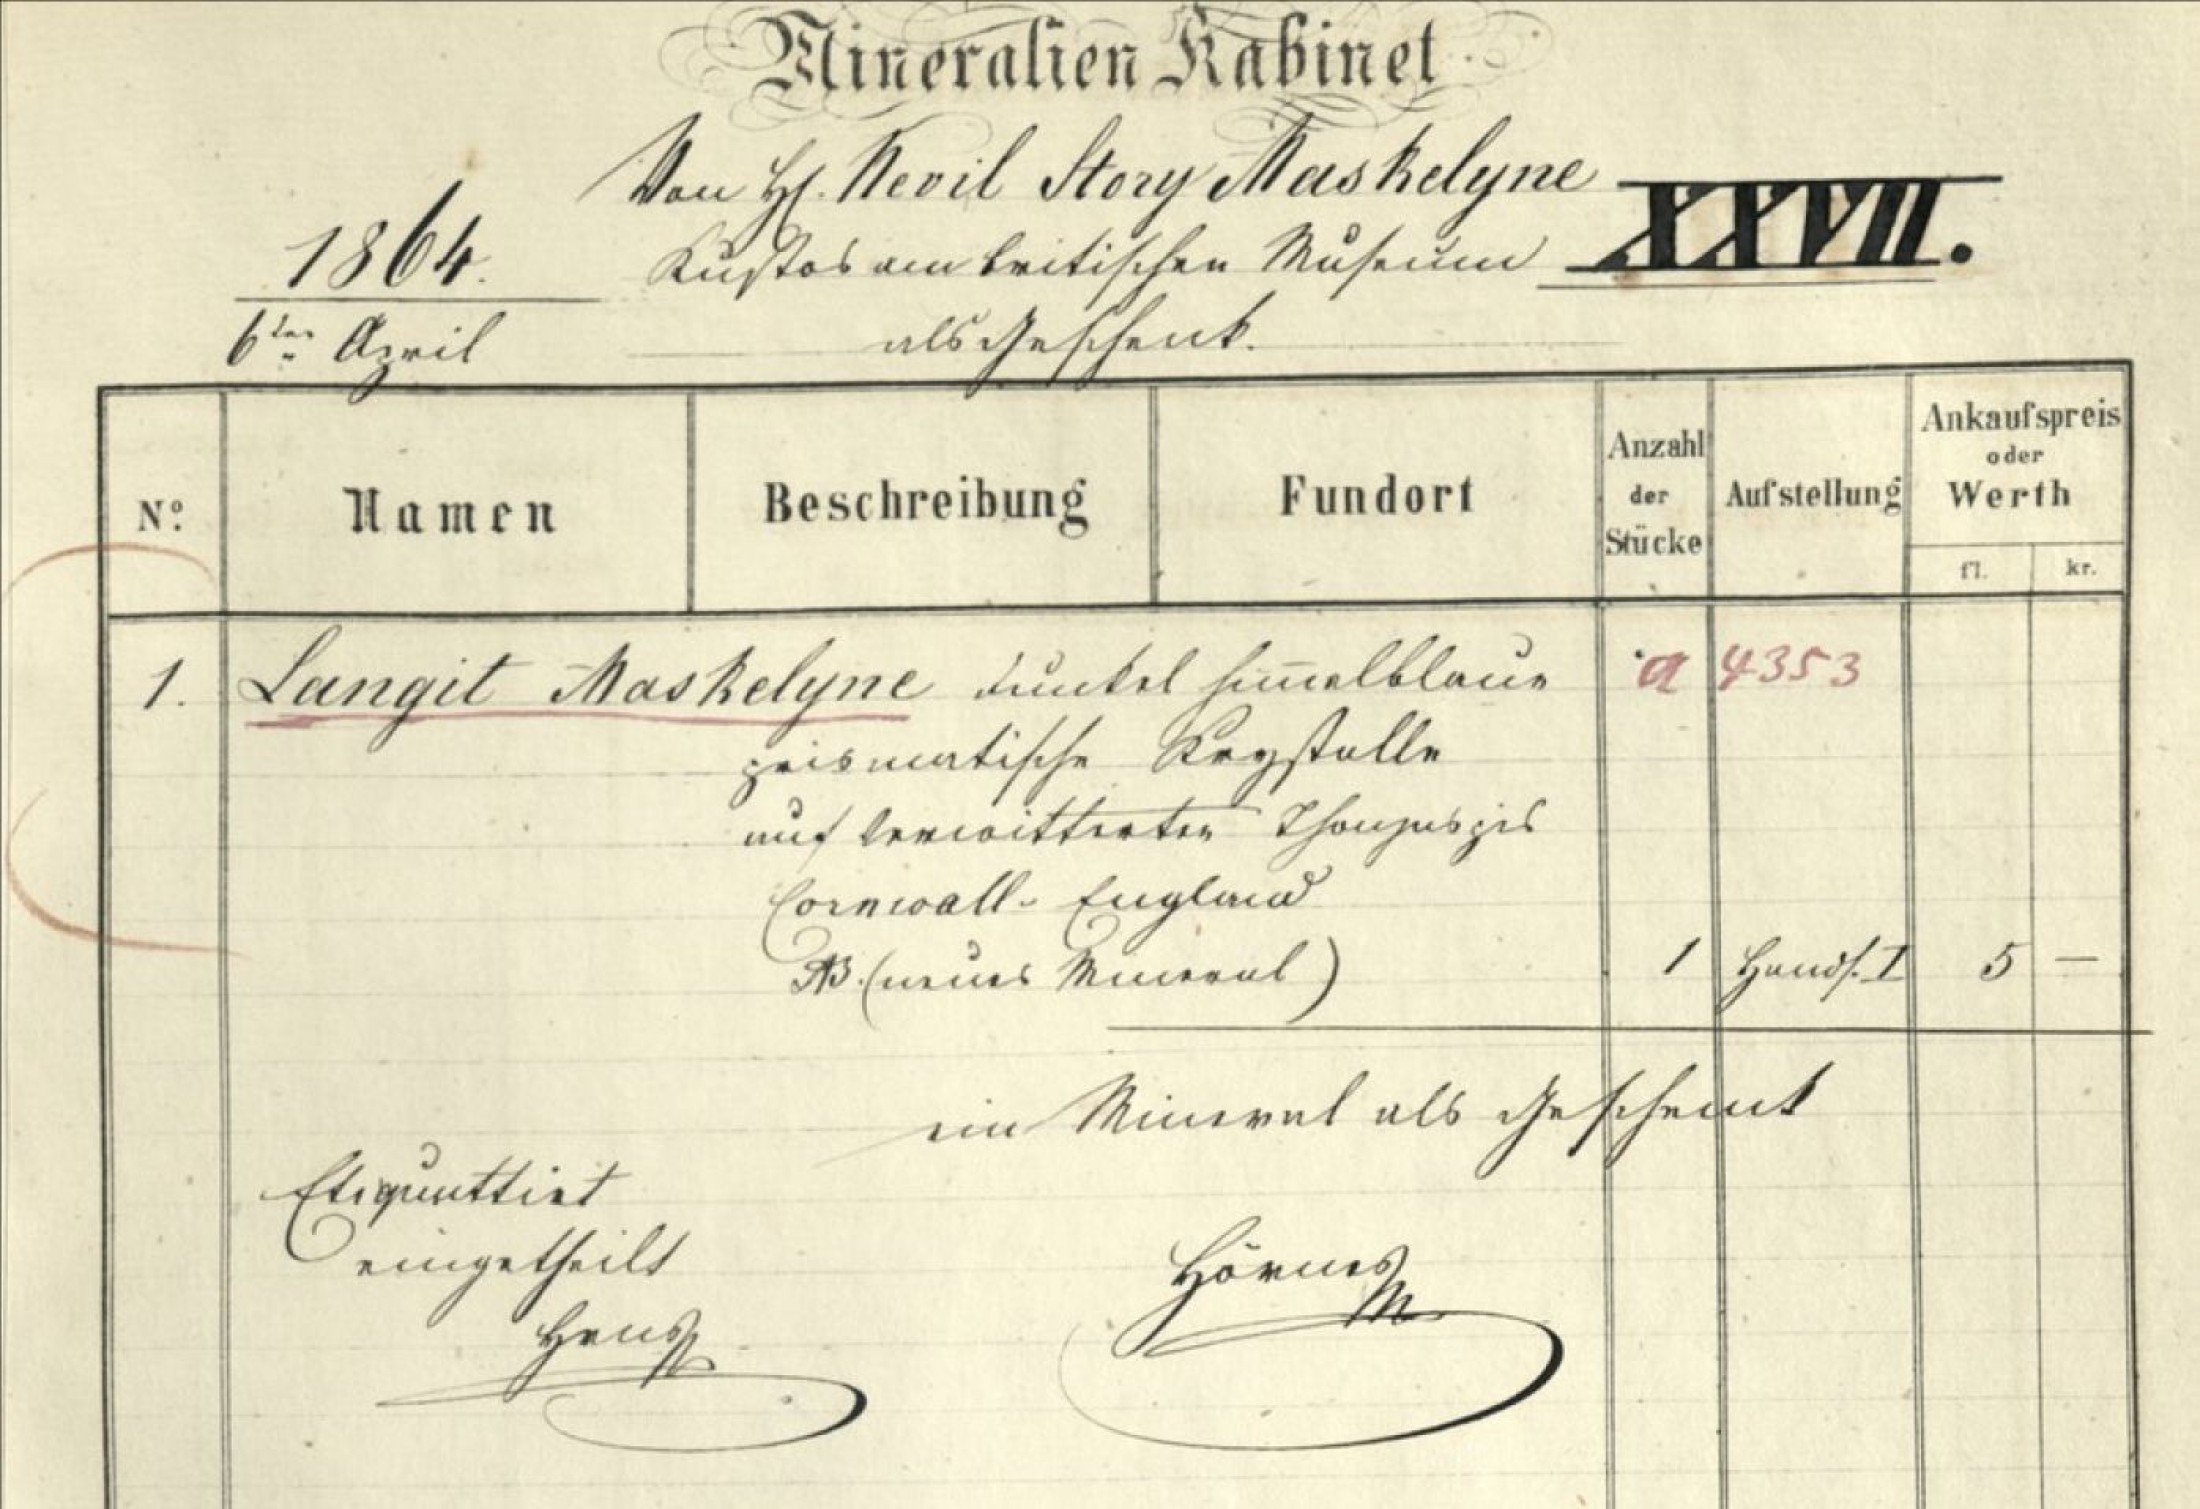 Mineralien Kabinet
Von H. Nevil Story Maskelyne
XXVII.
1864.
Kustos am britischen Museum
6ten April
als Geschenk.
No. Namen Beschreibung Fundort Anzahl der Stücke Aufstellung Ankaufspreis oder Werth
fl. kr.
1. Langit Maskelyne dunkel himmelblaue a 4353
prismatische Krystalle
auf verwitterten
Cornwall - England
NB. (neues Mineral) 1 Hands. I 5 —
ein Mineral als Geschenk
Etiquettirt
eingetheilt
Hörnes